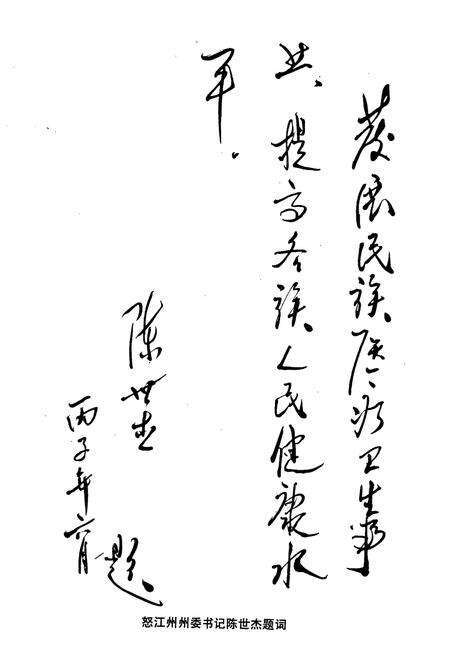 发展民族医疗卫生事
业、提高各族人民健康水
平。
陈世杰
题
丙子年六月
怒江州州委书记陈世杰题词